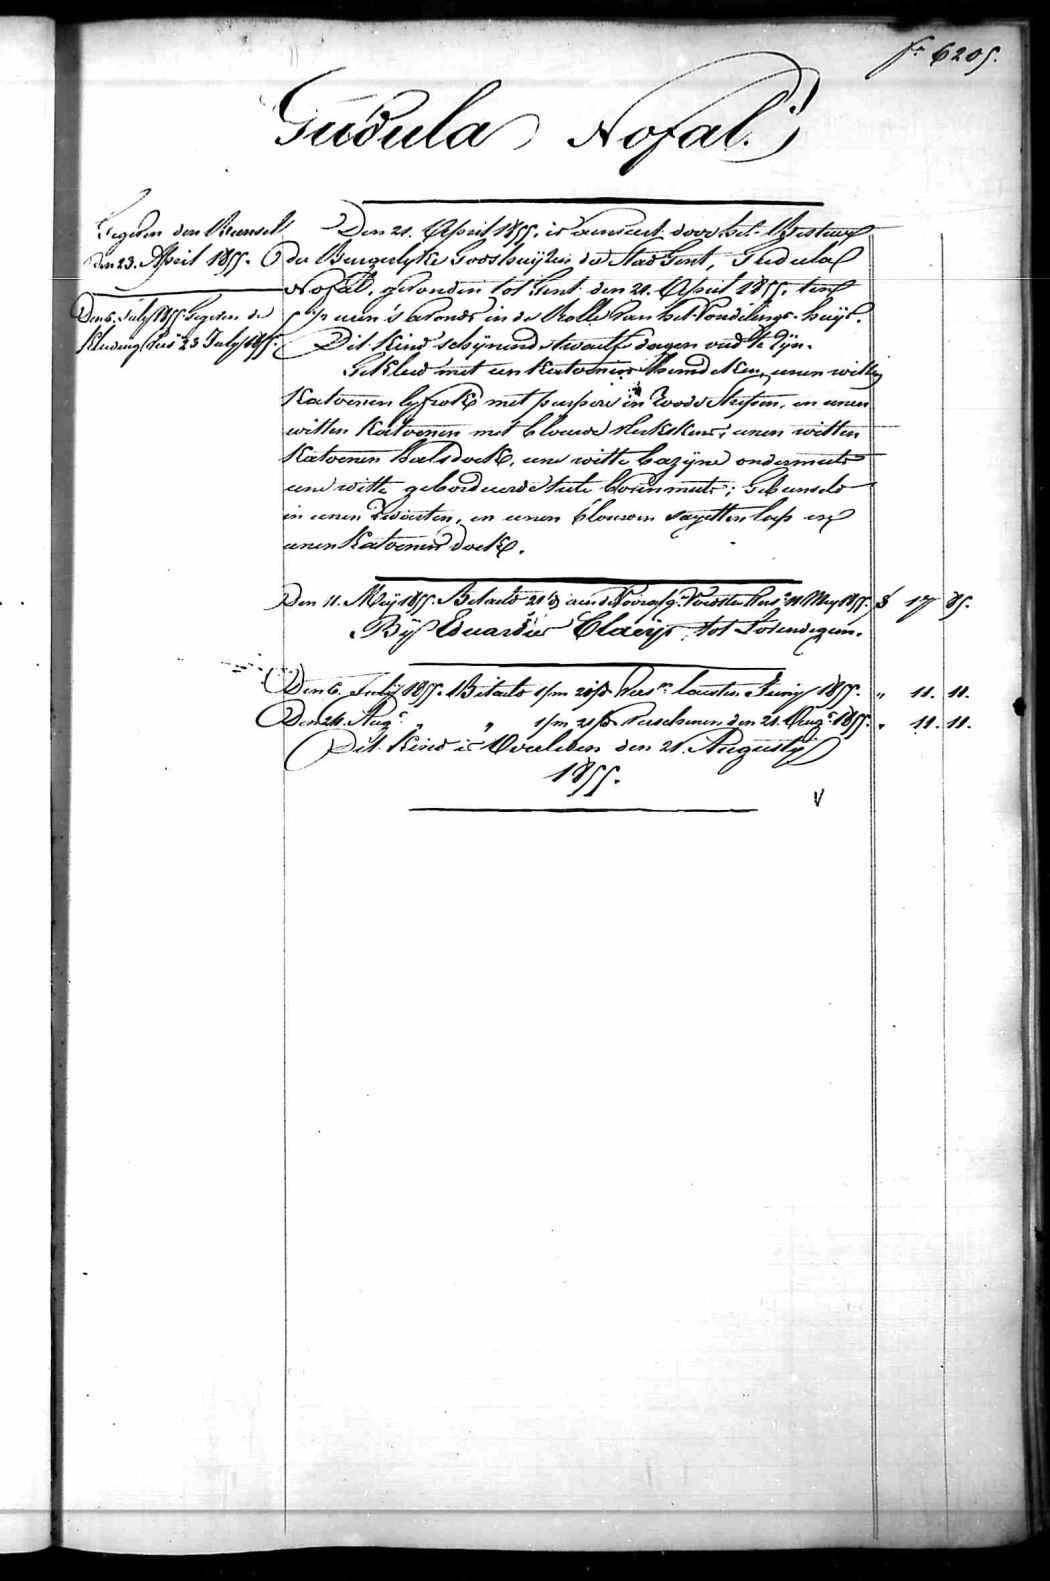 fo 6205.
Gudula Nofal.
Gegeven den Bunsel
den 23. April 1855.
Den 6. July 1855 Gegeven de
Kleeding vers 23 July 1855.
Den 21. April 1855. is door het Bestuur
der Burgerlyke Godshuyzen der Stad Gent, Gudula
Nofal, gevonden tot Gent den 21. April 1855. ten
uren 's avonds in de Rolle van het Vondelings-huys.
Dit kind schynende twaelf dagen oud te zyn.
Gekleed met een katoenen hemdeken, eenen witten
katoenen lyfrok met purpere en roode strepen, en eenen
witten katoenen met blouwe sterkskens, eenen witten
katoenen halsdoek, eene witte bazyne ondermuts
eene witte gebordeerde tule bovenmuts; Gebunseld
in eenen zwarten, en eenen blouwen sayetten lap en
eenen katoenen doek.
Den 11. Mey 1855. Betaeld 21 d. aen de Voorsten Vers. 11 Mey 1855. f 17 85.
By Eduardus Claeys, tot Lovendegem.
Den 6. July 1855. Betaeld 1/m 21/d. Vers.n laesten Juny 1855. " 11. 11.
Den 24. Aug. " " 1/m 21/d. verschenen den 21. Aug. 1855. " 11. 11.
Dit kind is Overleden den 21. Augusty
1855.